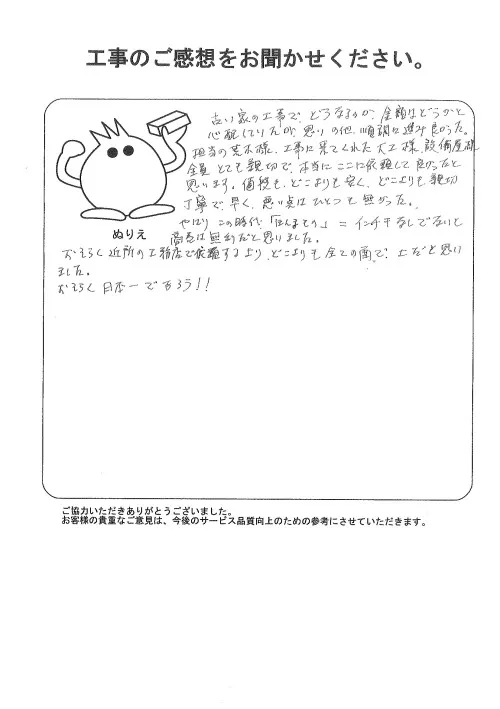 工事のご感想をお聞かせください。
古い家の工事で、どうなるのか、金額はどうかと
心配していたが、思いの他、順調に進み良かった。
担当の 様、工事に来てくれた大工様、設備屋様
全員とても親切で、本当にここに依頼して良かったと
思います。価格も、どこよりも安く、どこよりも親切
丁寧で早く、悪い点はひとつも無かった。
やはりこの時代、「ほんまもの」=インチキなしでないと
商売は無理だと思いました。
ぬりえ
おそらく近所の工務店で依頼するより、どこよりも全ての面で、上だと思い
ました。
おそらく日本一であろう!!
ご協力いただきありがとうございました。
お客様の貴重なご意見は、今後のサービス品質向上のための参考にさせていただきます。